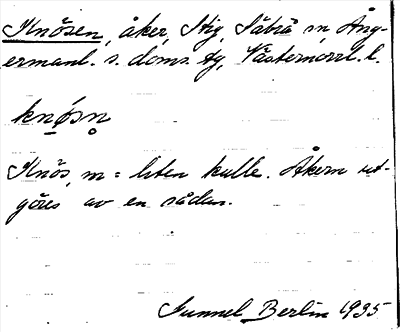 Knösen, åker, Stig, Säbrå sn, Ång-
ermanl. s. doms. tg, Västernorrl. l.
knø̄sn̥
Knös, m = liten kulle. Åkern ut-
göres av en sådan.
Gunnel Berlin 1935